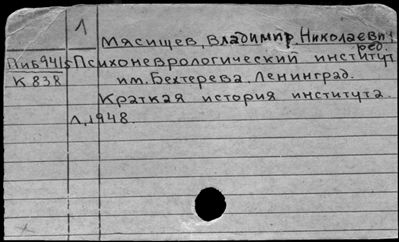 1
Мясищев, Владимир Николаевич,
ред.
Пиб941б Психоневрологический институт
К838 им. Бехтерева, Ленинград.
Краткая история института.
Л, 1948.